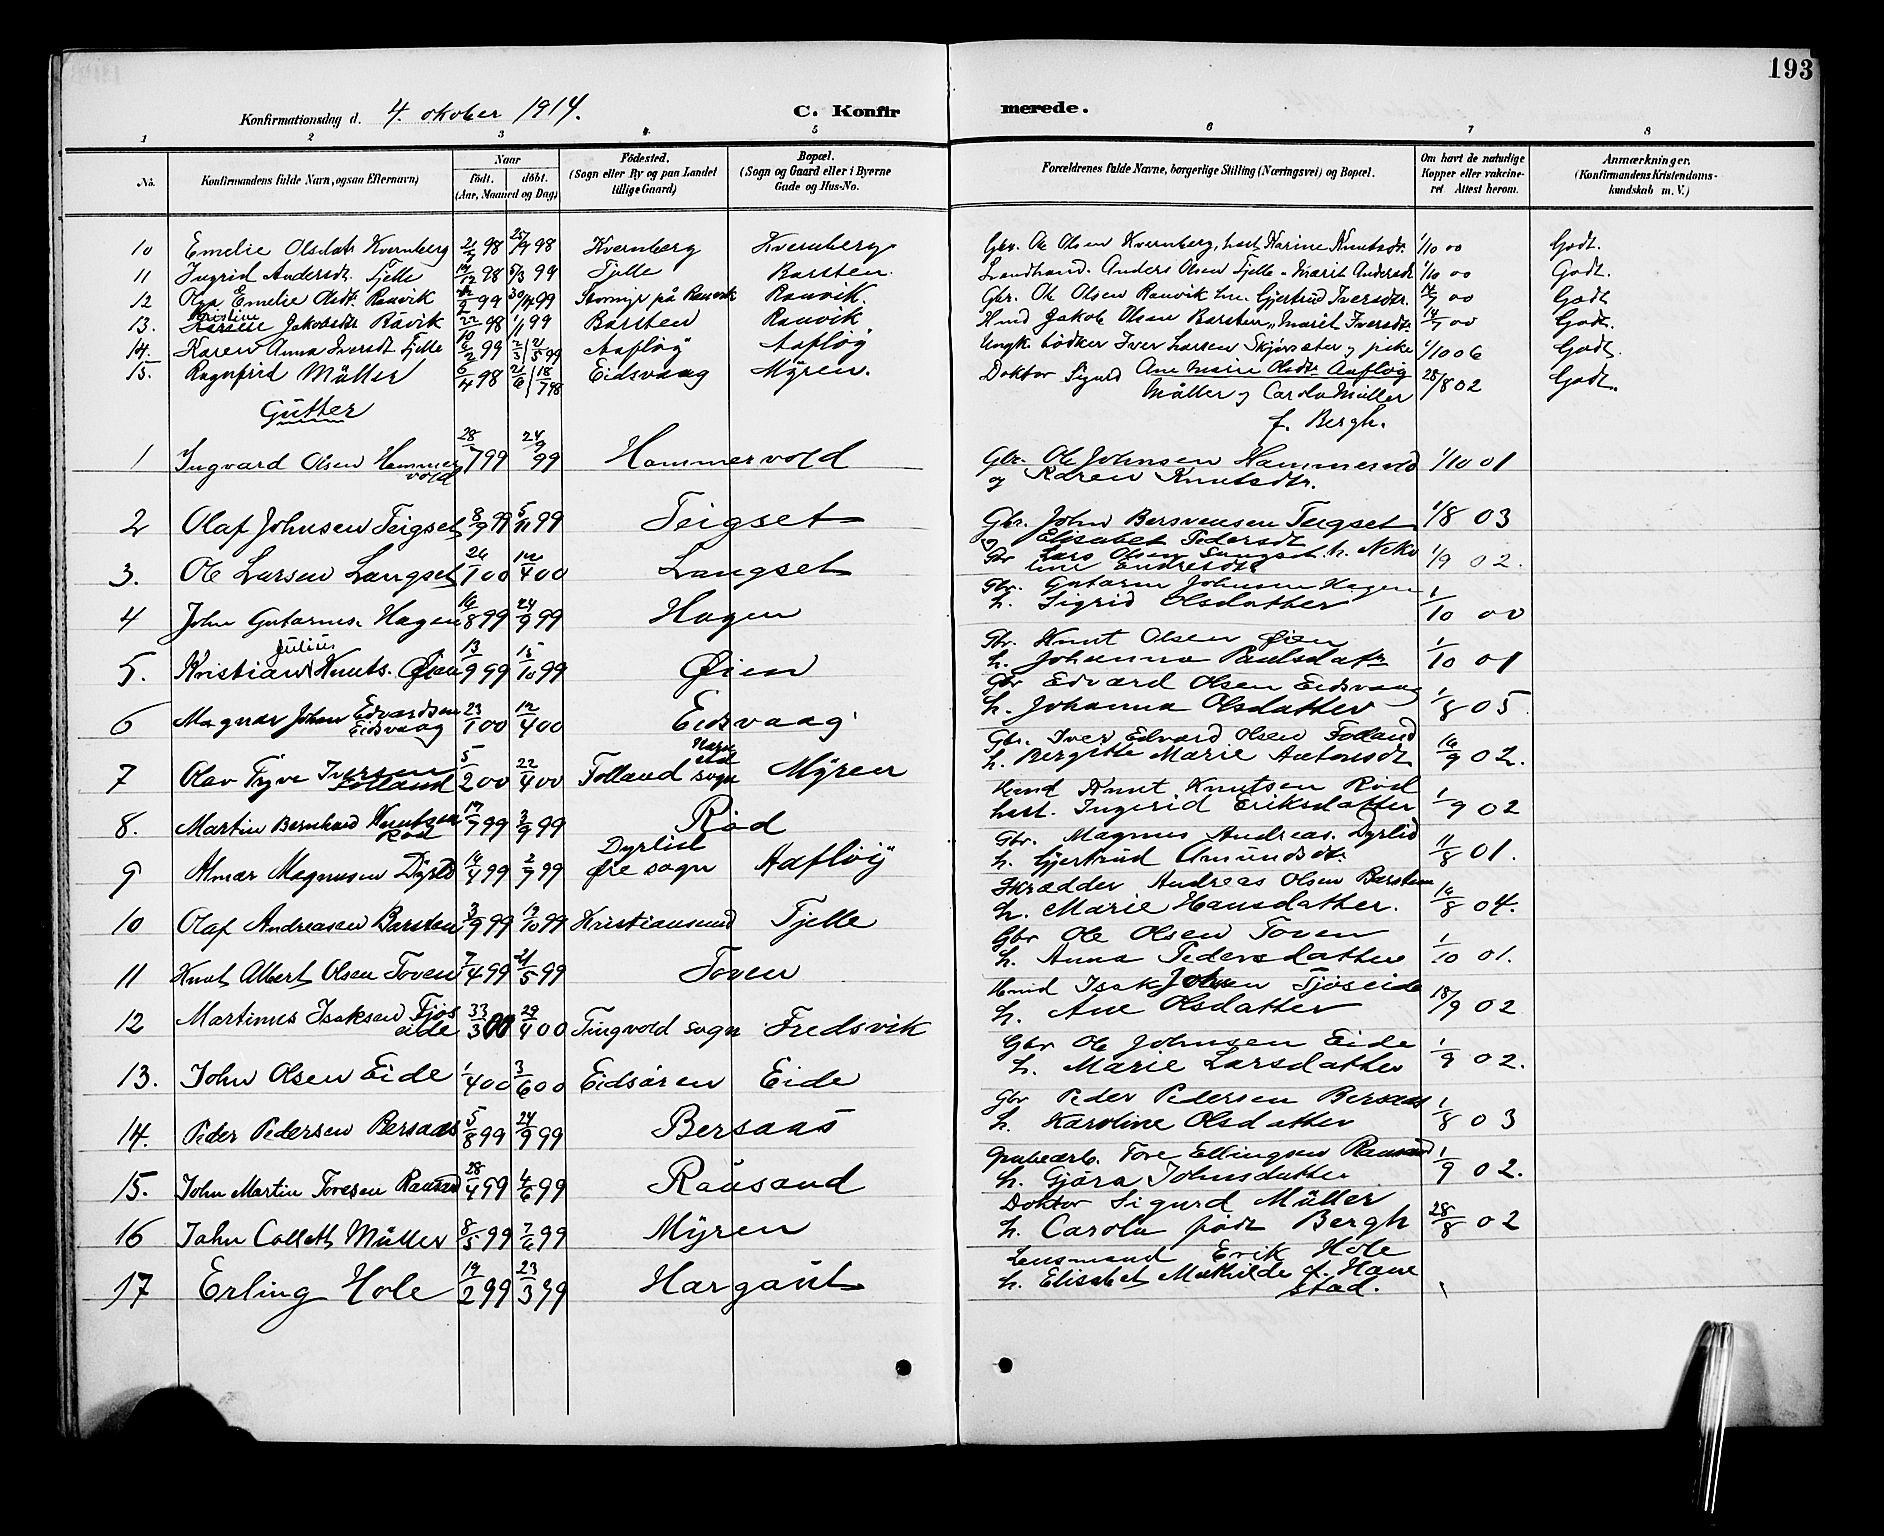 193
Konfirmationsdag d. 4. okober 1914. C. Konfirmerede.
1 2 3 4 5 6 7 8
No. Konfirmandens fulde Navn, ogsaa Efternavn) Naar født. døbt. (Aar, Maaned og Dag) Fødested. (Sogn eller By og paa Landet tillige Gaard) Bopæl. (Sogn og Gaard eller i Byerne Gade og Hus-No. Forældrenes fulde Navne, borgerlige Stilling (Næringsvei) og Bopæl. Om havt de naturlige Kopper eller vakcineret Attest herom. Anmærkninger. (Konfirmandens Kristendomskundskab m. V.)
10 Emelie Olsdatr Kvernberg 98 98 Kvernberg Kvernberg Gbr. Ole Olsen Kvernberg, hust Karine Knutsdr. 1/10 00 Godt.
11 Ingrid Andersdt. Tjelle 98 5/3 99 Tjelle Barsten. Anders Olsen Tjelle Marit Andersdt 1/10 00 Godt.
12 Olga Emelie Olsdt. Rauvik 99 30/4 99 på Rauvik Rauvik. Gbr. Ole Olsen Rauvik Gjertrud Iversdtr. 00 Godt
13. Kristine Jakobsdtr Råvik 22/10 98 1/1 99 Barsten Rauvik Jakob Olsen Barsten Marit Iversdt. 14/7 00 Godt.
14. Karen Anna Iversdt Tjelle 99 99 Aafløÿ Aafløÿ Ungk. bødker Iver Larsen Skjørsæter og pike 1/10 06 Godt.
15. Ragnfrid Müller 6/4 98 21/6 18/7 98 Eidsvaag Mÿren. Doktor Sigurd Ane Marie Olsdtr. Aafløÿ 28/8 02 Godt.
Müller og Carola Müller
f. Bergh.
Gutter
1 Ingvard Olsen Hammervold 28/7 99 24/9 99 Hammervold Gbr. Ole Johnsen Hammervold 1/10 01
og Karen Knutsdtr.
2 Olaf Johnsen Teigset 8/9 99 5/11 99 Teigset Gbr. John Bersvensen Teigset 1/8 03
og Elisabet Pedersdt
3. Ole Larsen Langset 26/1 00 00 Langset Gbr Lars Olsen Langset h. Niko 1/9 02.
line Endresdt
4 John Gutorms. Hagen 16/8 99 24/9 99 Hagen Gbr. Gutorm Johnsen Hagen 1/10 00
h. Sigrid Olsdatter
5. Kristian Julius Knuts. Øien 13/9 99 15/10 99 Øien Gbr. Knut Olsen Øien 1/10 01
h. Johanna Paulsdatr
6 Magnar Johan Edvardsen Eidsvaag 23/1 00 12/4 00 Eidsvaag Gbr Edvard Olsen Eidsvaag 1/8 05.
h. Johanna Olsdatter
7 Olav Trÿve Iversen Folland 5/2 00 22/4 00 Folland sogn Mÿren Gbr. Iver Edvard Olsen Folland 16/9 02.
h. Bergitte Marie Antonsdt
8. Martin Bernhard Knutsen Rød 99 3/9 99 Rød Hmd Knut Knutsen Rød 1/9 02
hust. Ingerid Eriksdatter
9 Almar Magnusen Dÿrlid 14/4 99 2/7 99 Dyrlid Øre sogn Aafløÿ Gbr. Magnus Andreas. Dyrlid 11/8 01.
h. Gjertrud Amundsdt.
10 Olaf Andreasen Barsten 3/9 99 99 Kristiansund Tjelle Skrædder Andreas Olsen Barsten 16/8 04.
h. Marie Hansdatter.
11 Knut Albert Olsen Toven 7/4 99 21/5 99 Toven Gbr Ole Olsen Toven 1/10 01.
h. Anna Pedersdatter
12 Martinus Isaksen Tjøseide /3 00 29/4 00 Tingvold sogn Fredsvik Hmd Isak Johnsen Tjøseide 18/9 02
h. Ane Olsdatter
13. John Olsen Eide 1/4 00 3/6 00 Eidsøren Eide Gbr Ole Johnsen Eide 1/9 02.
h. Marie Larsdatter
14. Peder Pedersen Bersaas 5/8 99 24/9 99 Bersaas Gbr Peder Pedersen Bersaas 1/8 03
h. Karoline Olsdatter
15. John Martin Toresen Rausand 28/4 99 99 Rausand Grubearb. Tore Ellingsen Rausand 1/9 02.
h. Gjøra Johnsdatter
16 John Collett Müller 8/5 99 99 Mÿren Doktor Sigurd Müller 28/8 02
h. Carola født Bergh
17 Erling Hole 19/2 99 23/3 99 Hargaut Lensmand Erik Hole
h. Elisabet Mathilde f. Hanestad.